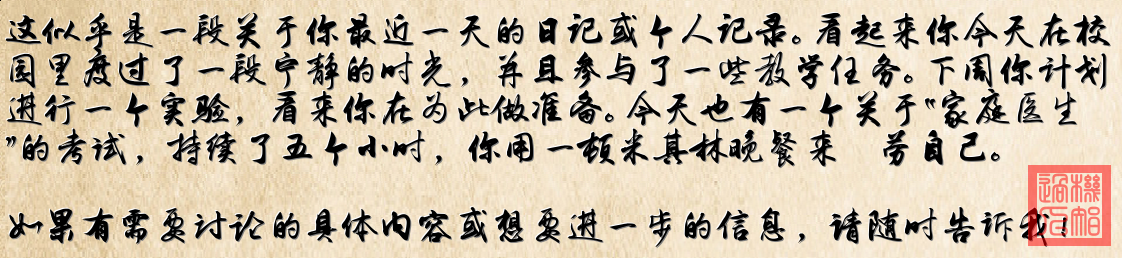 这似乎是一段关于你最近一天的日记或个人记录。看起来你今天在校
园里度过了一段宁静的时光，并且参与了一些教学任务。下周你计划
进行一个实验，看来你在为此做准备。今天也有一个关于“家庭医生
”的考试，持续了五个小时，你用一顿米其林晚餐来 劳自己。
如果有需要讨论的具体内容或想要进一步的信息，请随时告诉我！